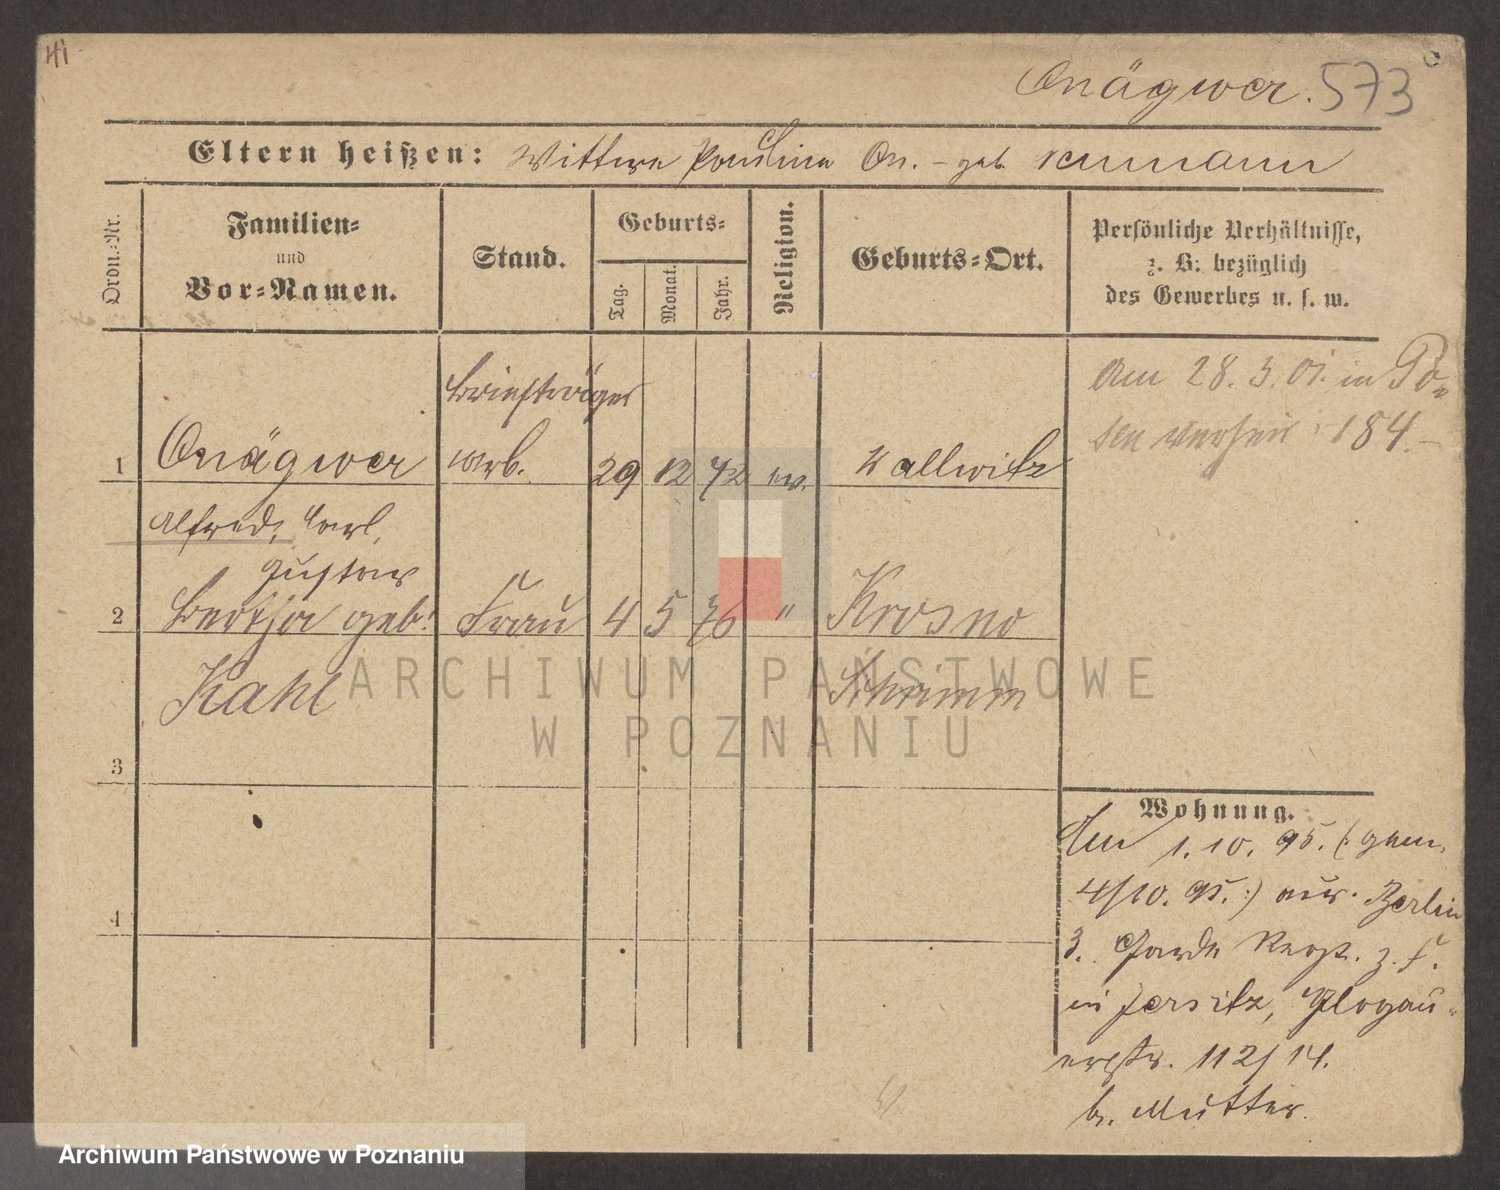 41
Onägwer. 573
Eltern heißen: Wittwe Pauline On. - geb. Neumann
Ordn.-Nr.
Familien-
und
Vor-Namen.
Stand.
Geburts-
Tag.
Monat.
Jahr.
Religion.
Geburts-Ort.
Persönliche Verhältnisse,
z. B. bezüglich
des Gewerbes u. s. w.
Am 28. 3. 01. in Po-
sen verheir. 184.
Briefträger
1 Onägwer arb. 29 12 72 ev. Kallwitz
Alfred, Carl,
Gustav
2 Bertha geb. Frau 4 5 76 " Krosno
Kahl Schrimm
3
4
Wohnung.
Am 1. 10. 95. (: gem.
4/10. 95. :) aus Berlin
3. Garde Regt. z. F.
in Jersitz, Glogau-
erstr. 112/14.
b. Mutter.
ARCHIWUM PAŃSTWOWE
W POZNANIU
Archiwum Państwowe w Poznaniu